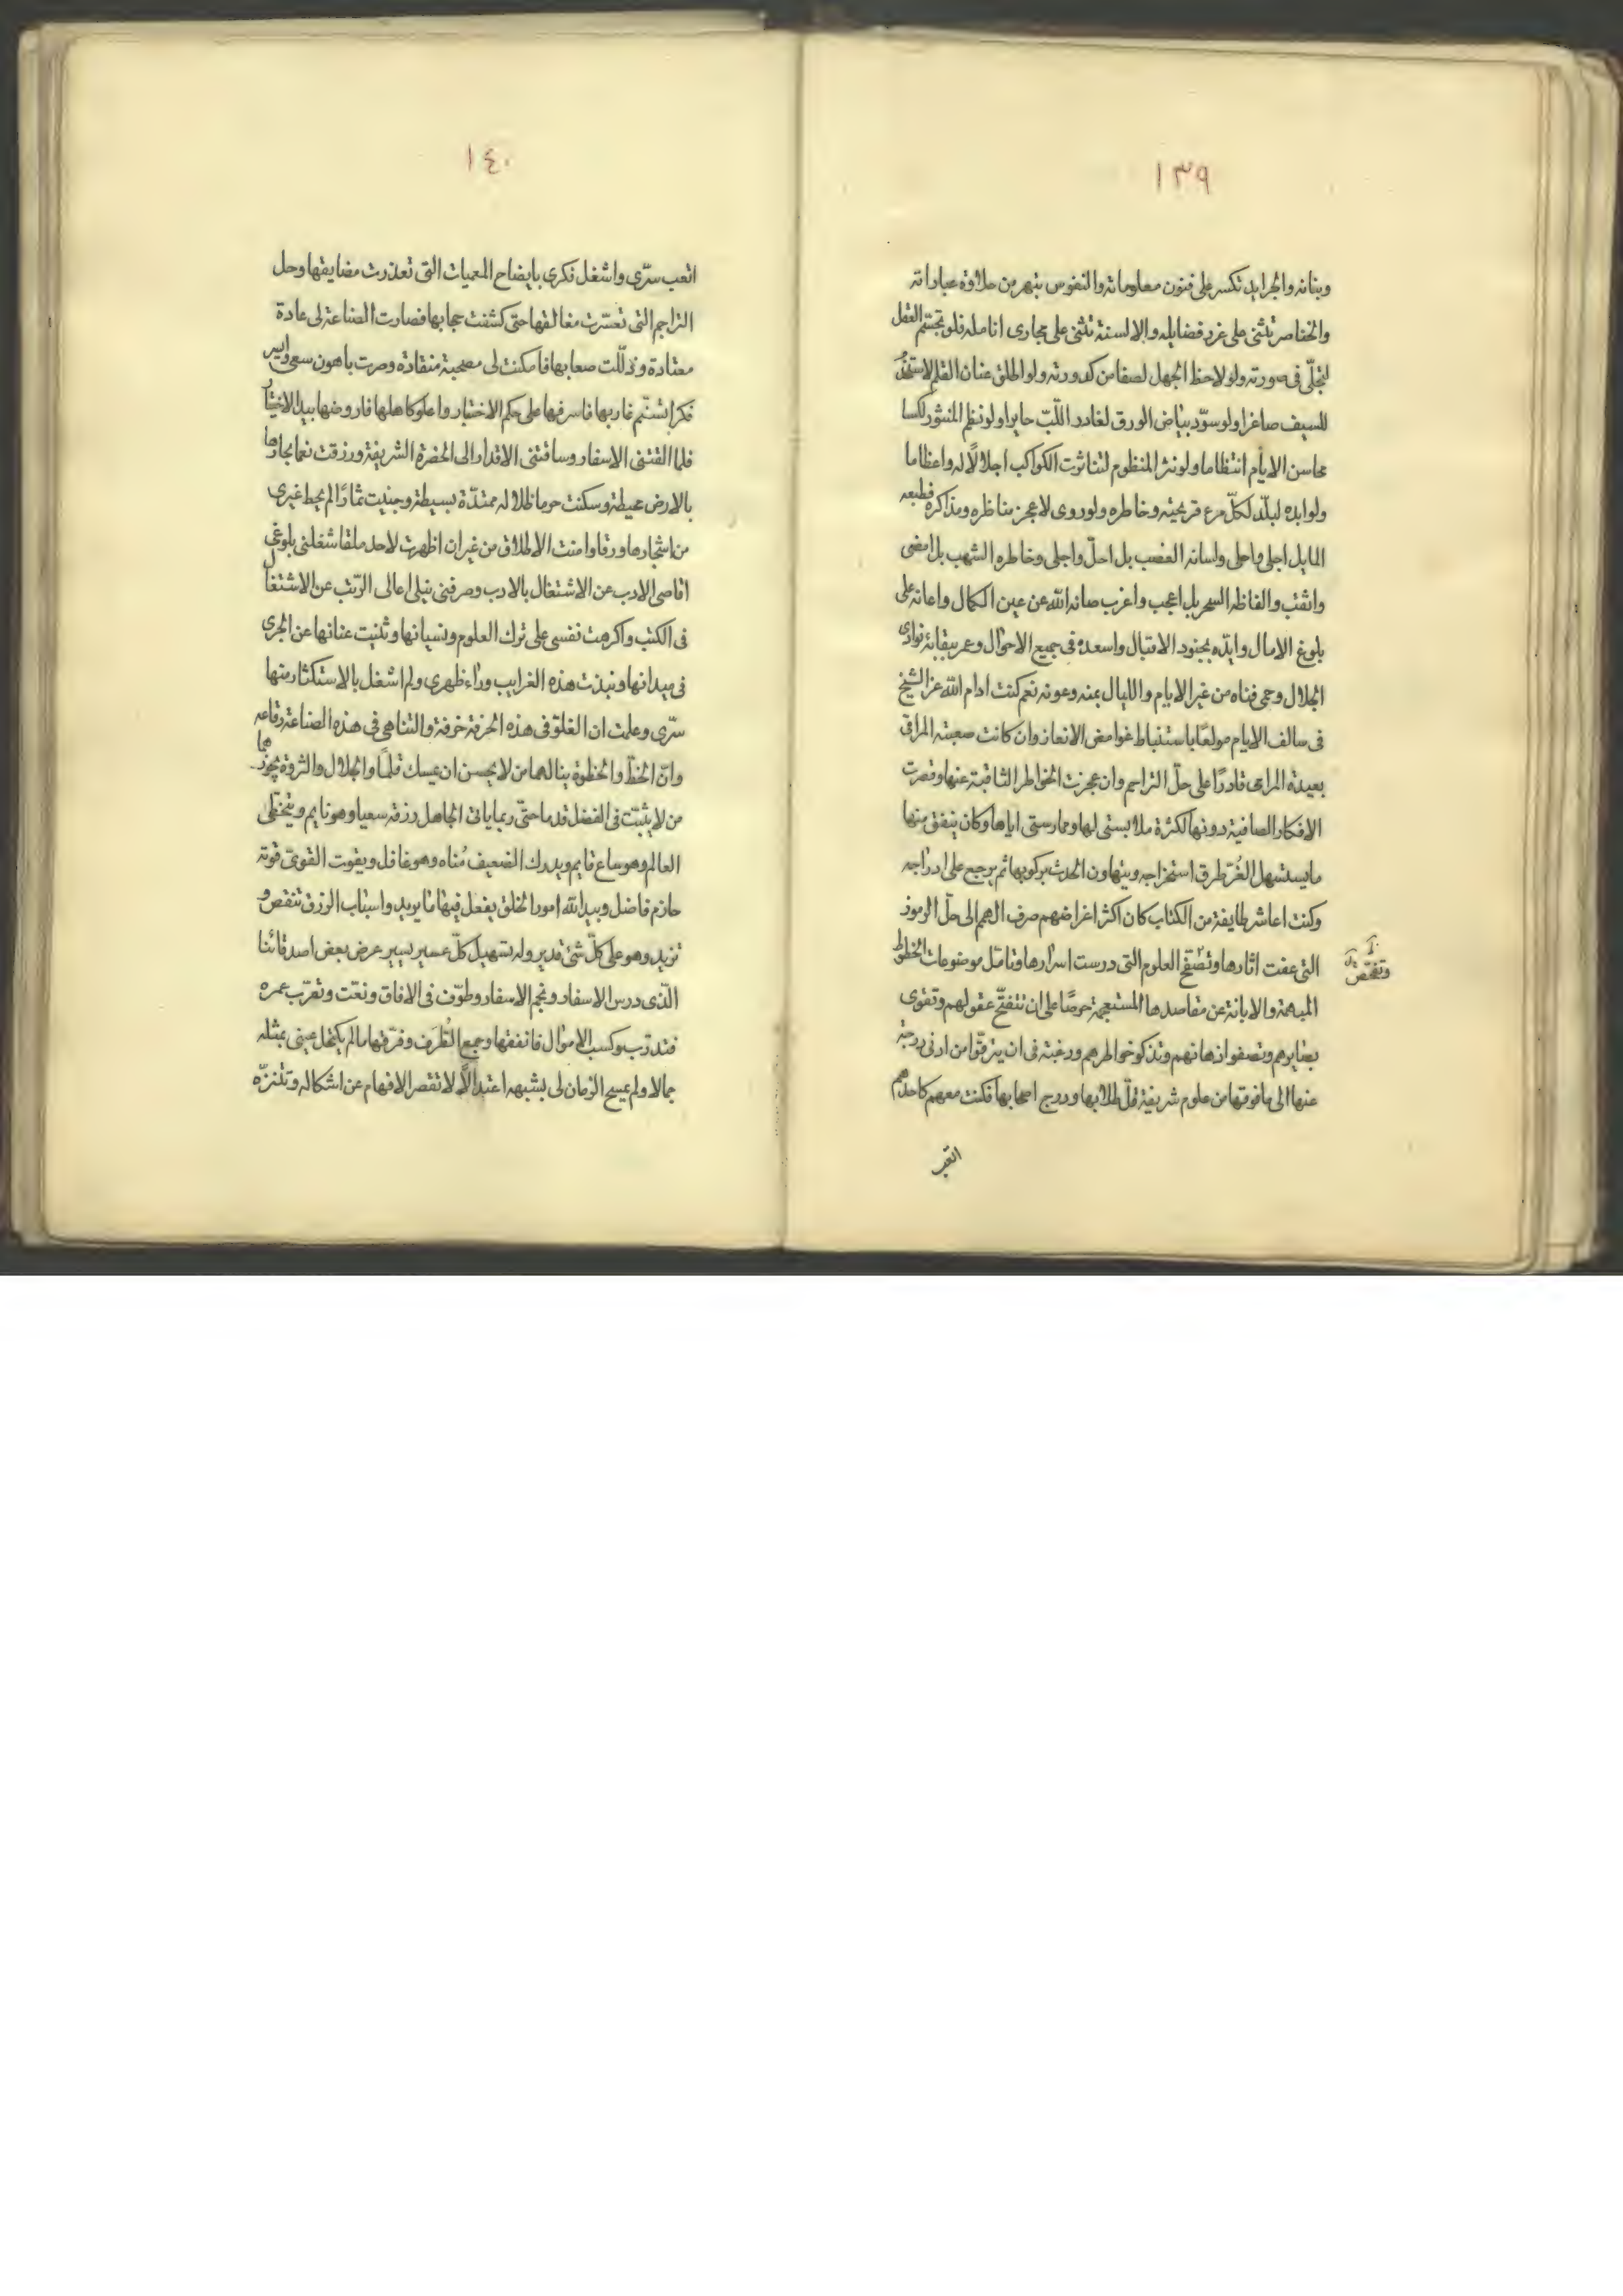 ١٣٩
وبنانه والجرايد تكسر على فنون معلوماته والنفوس تبهر من حلاوة عباراته
والخناصر تثنى على غرر فضايله والالسنة تثنى على مجارى انامله فلو تجسّم العقل
لتجلّى فى صورته ولو لاحظ الجهل لصفا من كدورته ولو اطلق عنان القلم لاستخذ
للسيف صاغرا ولو سوّد بياض الورق لغادر اللّبّ حايرا ولو نظم المنثور لكسا
محاسن الايام انتظاما ولو نثر المنظوم لتناثرت الكواكب اجلالًا له واعظاما
ولو ابده لبلّد لكلّ مرء قريحته وخاطره ولو روى لاعجز مناظره ومذاكره فطبعه
المايل اجلى واحلى ولسانه العضب بل احلّ واجلى وخاطره الشهب بل امضى
واثقب والفاظه السحر بل اعجب واغرب صانه الله عن عين الكمال واعانه على
بلوغ الامال وايّده بجنود الاقبال واسعده فى جميع الاحوال وعمر ببقائه نوادى
الجلال وحمى فناه من غير الايام والليال بمنه وعونه نعم كنت ادام الله عز الشيخ
فى سالف الايام مولعًا باستنباط غوامض الالغاز وان كانت صعبة المراقى
بعيدة المرامى قادرًا على حلّ التراسم وان عجزت الخواطر الثاقبة عنها وقصرت
الافكار الصافية دونها لكثرة ملابستى لها وممارستى اياها وكان يتفق منها
ما يستسهل الغُرّ طرق استخراجه ويتهاون الحدث بركوبها ثم يرجع على ادراجه
وكنت اعاشر طايفة من الكتاب كان اكثر اغراضهم صرف الهمم الى حلّ الرموز
التى عفت اثارها وتصفّح العلوم التى درست اسرارها وتامّل موضوعات الخطوط
وتفحّص
المبهمة والابانة عن مقاصدها المستعجمة حرصًا على ان تتفتّح عقولهم وتقوى
بصايرهم وتصفو اذهانهم وتذكو خواطرهم ورغبة فى ان يترقّوا من ادنى درجة
عنها الى ما فوقها من علوم شريفة قلّ طلابها ودرج اصحابها فكنت معهم كاحدهم
اتعب
١٤٠
اتعب سرّى واشغل فكرى بايضاح المعميات التى تعذرت مضايقها وحل
التراجم التى تعسّرت مغالقها حتى كشفت حجابها فصارت الصناعة لى عادة
معتادة وذلّلت صعابها فامكنت لى مصحبة منقادة وصرت باهون سعى وايسر
فكر اتسنّم غاربها فاسرفها على حكم الاختبار واعلو كاهلها فاروضها بيد الاختيار
فلما القتنى الاسفار وساقتنى الاقدار الى الحضرة الشريفة ورزقت نعما بجارها
بالارض محيطة وسكنت حرما ظلاله ممتدّة بسيطة وجنيت ثمارًا لم يحط غيرى
من اشجارها ورقا وامنت الاملاق من غير ان اظهرت لاحد ملقا شغلنى بلوغى
اقاصى الادب عن الاشتغال بالادب وصرفنى نيلى اعالى الرّتب عن الاشتغال
فى الكتب واكرهت نفسى على ترك العلوم ونسيانها وثنيت عنانها عن الجرى
فى ميدانها ونبذت هذه الغرايب وراء ظهرى ولم اشغل بالاستكثار منها
سرّى وعلمت ان الغلوّ فى هذه الحرفة خرفة والتناهى فى هذه الصناعة رقاعة
وانّ الحظّ والحظوة ينالهما من لا يحسن ان يمسك قلمًا والجلال والثروة يحوزهما
من لا يثبت فى الفضل قدما حتّى ربما ياتى الجاهل رزقه سعيا وهو نايم ويتخطى
العالم وهو ساع قايم ويدرك الضعيف مُناه وهو غافل ويفوت القوىّ قوته
حازم فاضل وبيد الله امور الخلق يفعل فيها ما يريد واسباب الرزق تنقص و
تزيد وهو على كلّ شئ قدير وله تسهيل كلّ عسير يسير عرض بعض اصدقائنا
الّذى درس الاسفار ونجم الاسفار وطوّف فى الافاق ونعّت وتغرّب عمره
فتدرّب وكسب الاموال فانفقها وجمع الطُرَف وفرّقها ما لم يكتحل عينى بمثله
جمالا ولم يسمح الزمان لى بشبهه اعتدالًا لا تقصر الافهام عن اشكاله وتتنزّه